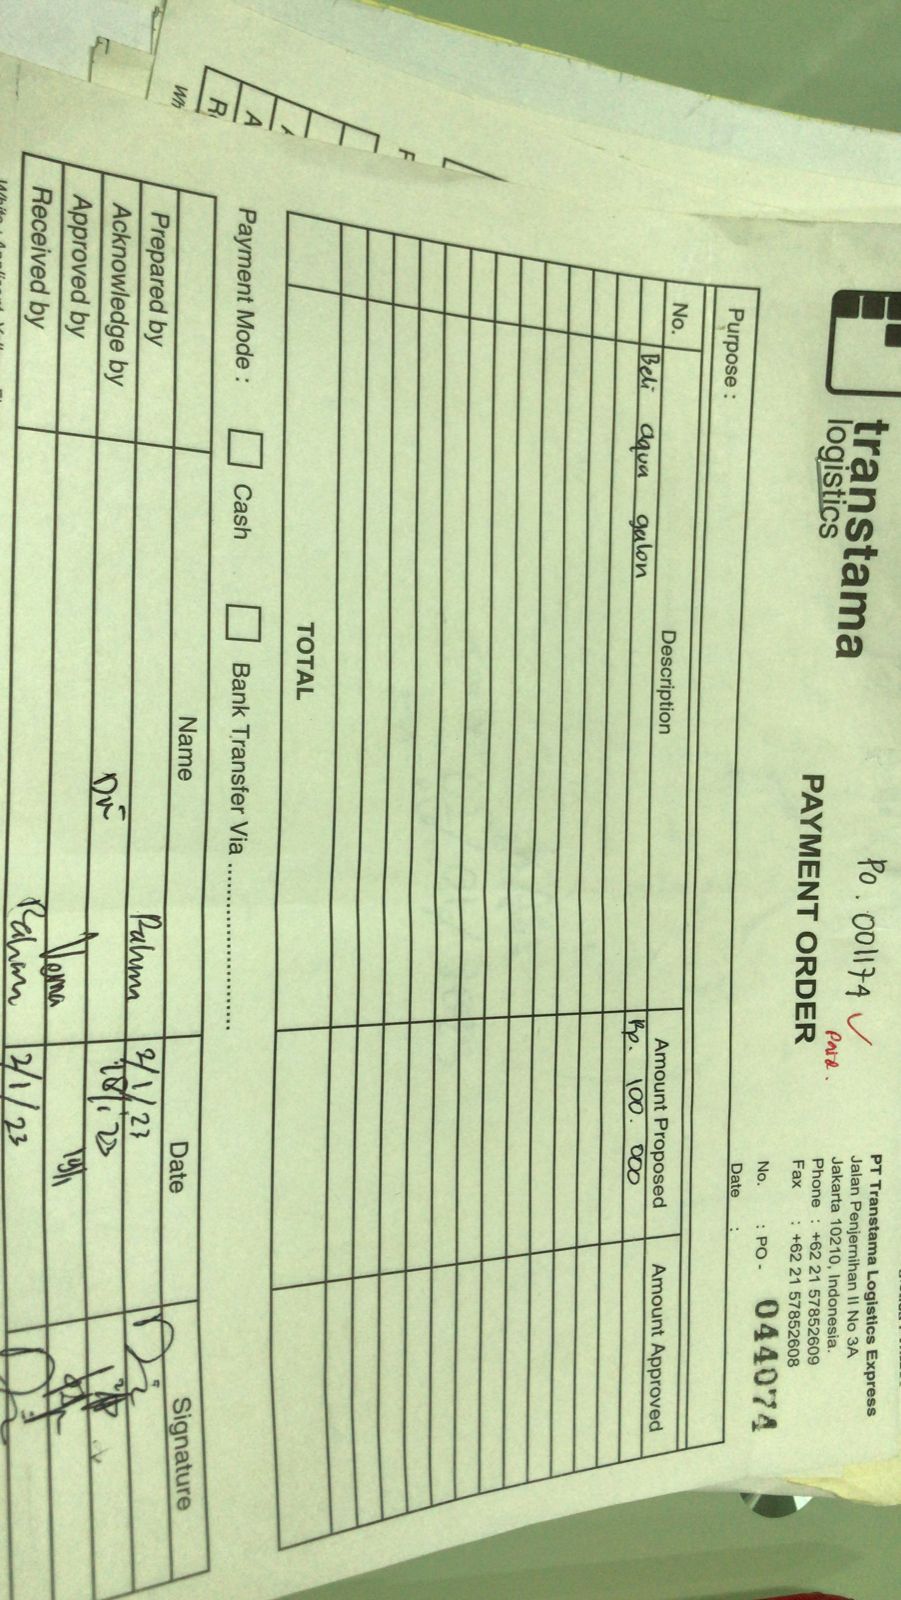 transtama
logistics
PO. 001174 ✓
Paid.
PAYMENT ORDER
PT Transtama Logistics Express
Jalan Penjernihan II No 3A
Jakarta 10210, Indonesia.
Phone : +62 21 57852609
Fax : +62 21 57852608
No. : PO - 044074
Date :
Purpose :
No. Description Amount Proposed Amount Approved
Beli aqua galon Rp. 100.000
TOTAL
Payment Mode : Cash Bank Transfer Via ..............................
Name Date Signature
Prepared by Rahma 2/1/23
Acknowledge by
Approved by
Received by Rahma 2/1/23